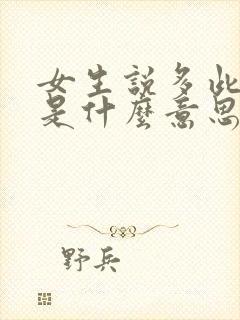 女生說多此
是什麼意思
野兵